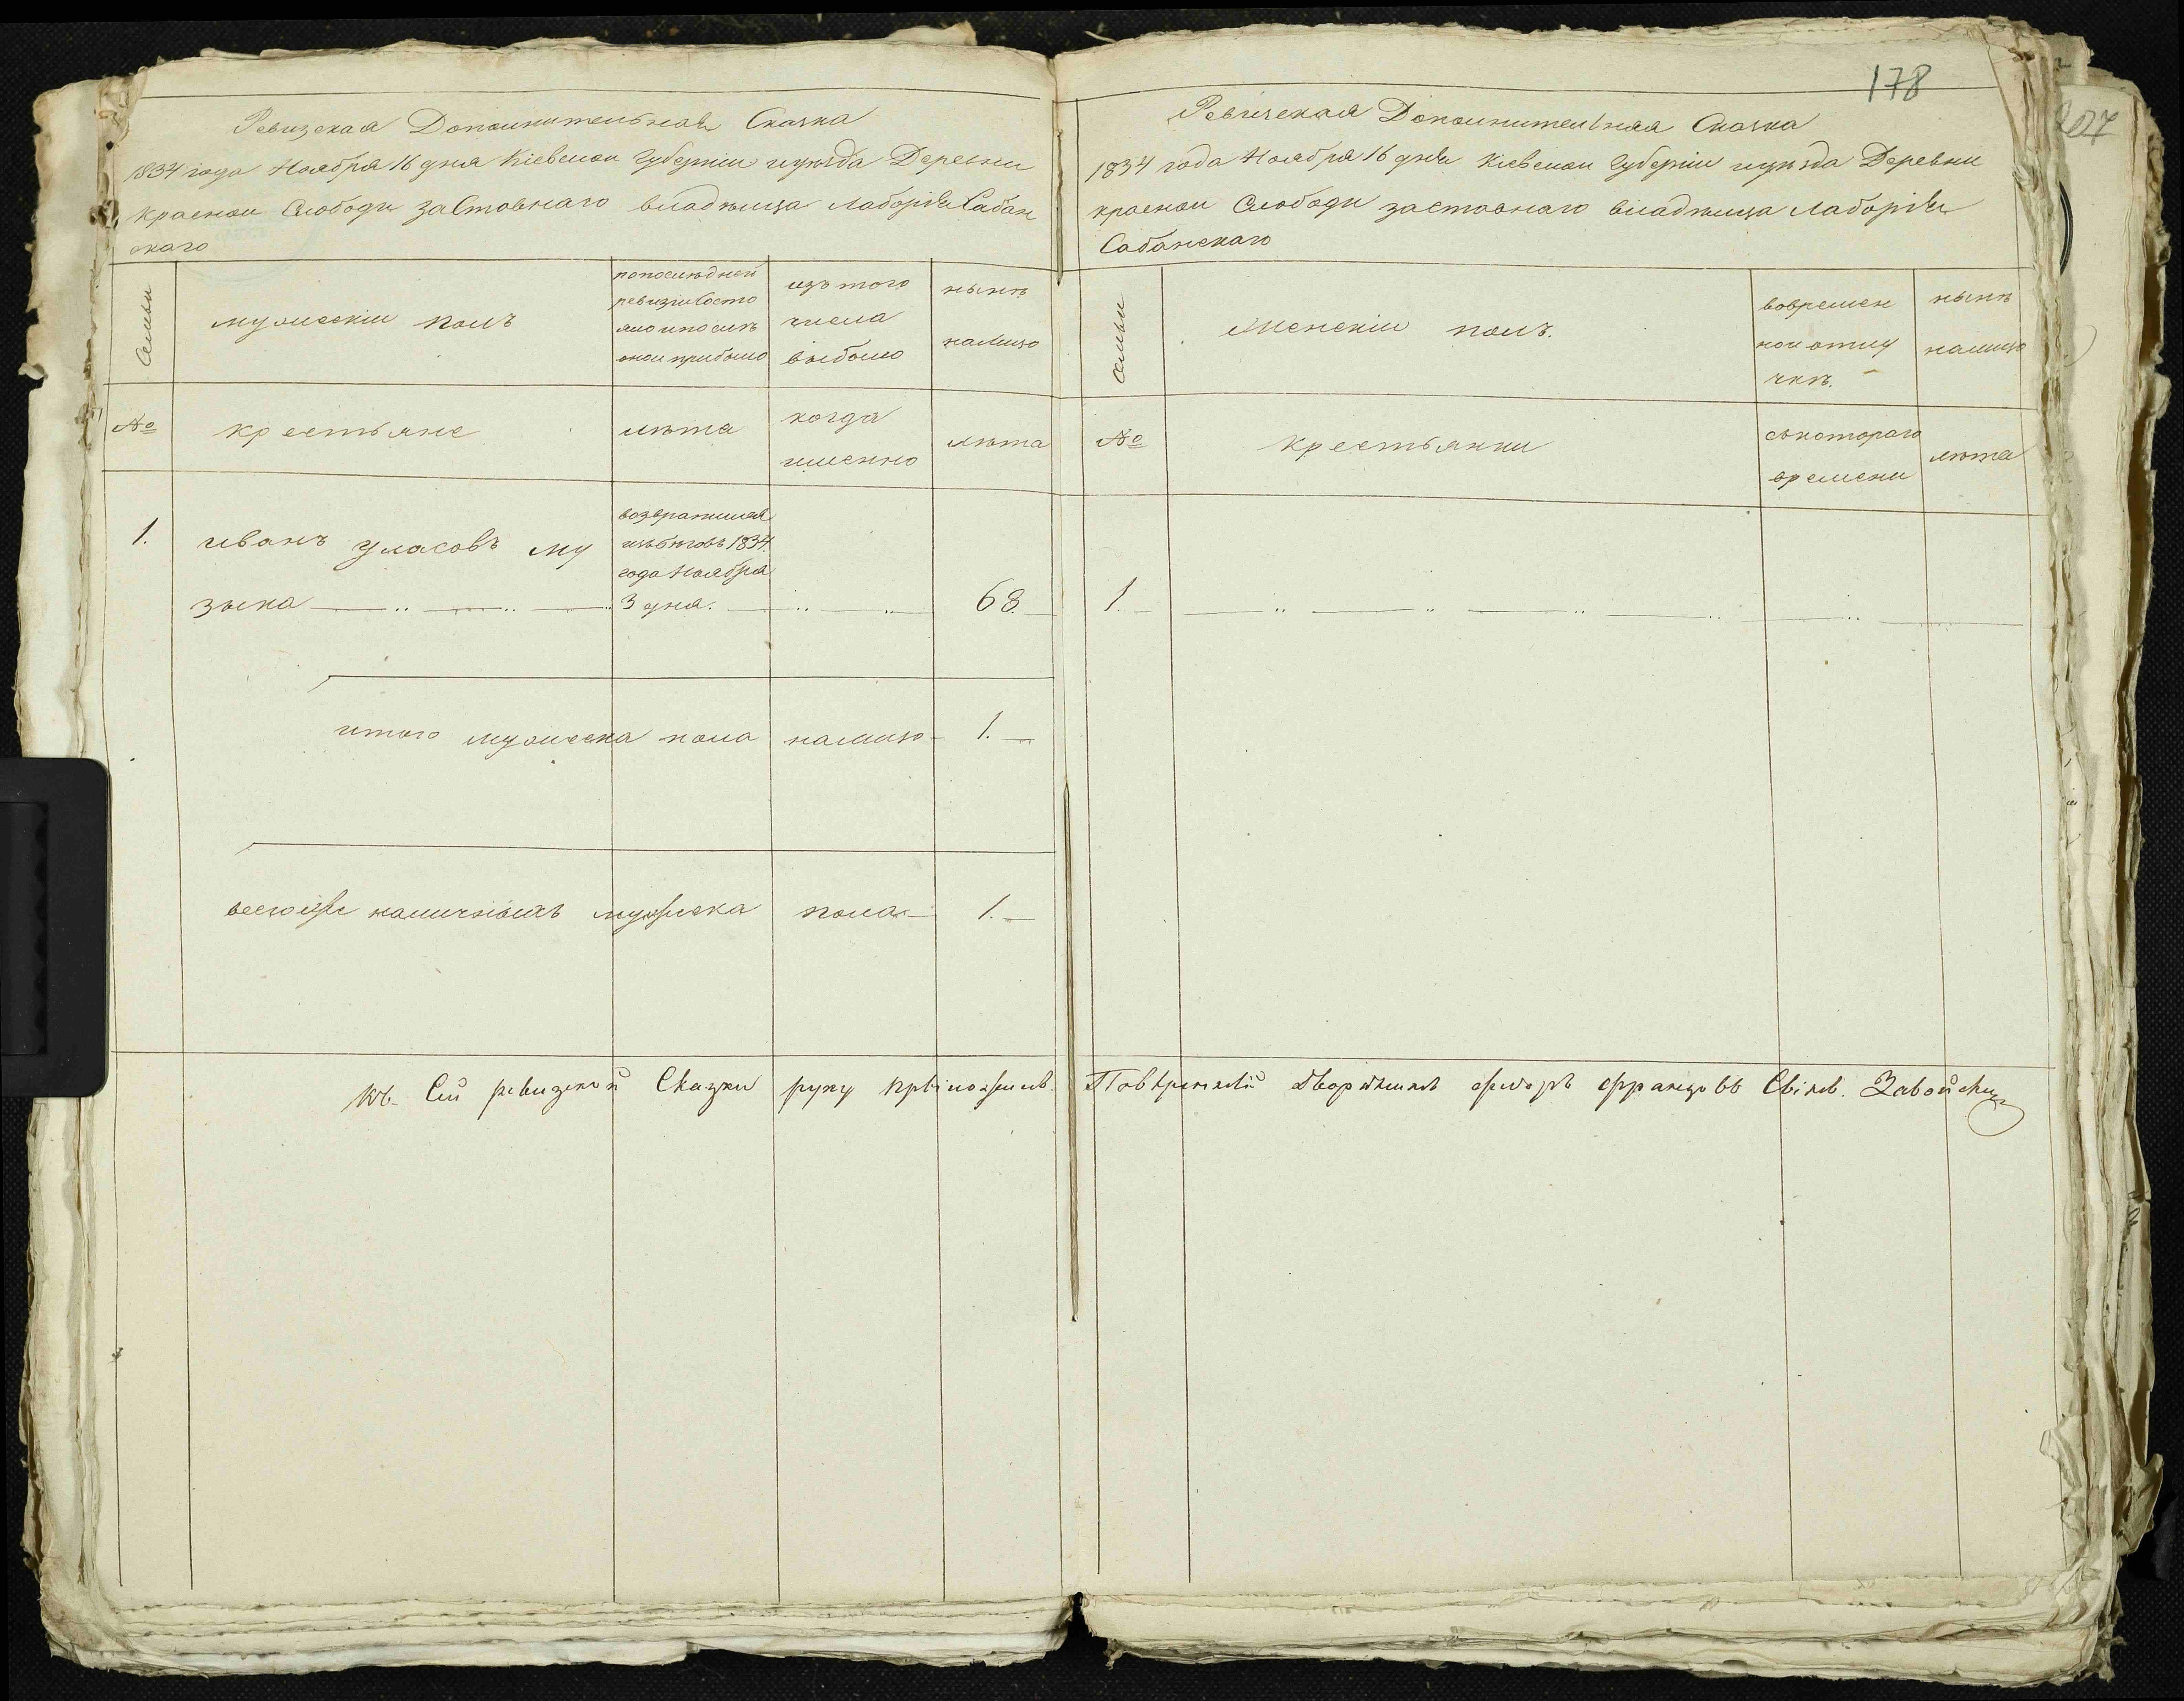 178
207
Ревизская Дополнительная Сказка
1834 года Ноября 16 дня Кіевской Губерніи и уѣзда Деревни
красной Слободи заставнаго владѣльца Лаборія Сабан
скаго
Семьи
мужескій полъ
попослѣдней
ревизіи Состо
яло и послѣ
оной прибыло
изъ того
числа
выбыло
нынѣ
налицо
№
крестьяне
лѣта
когда
именно
лѣта
1.
иванъ уласовъ му
зыка
возвратился
изъ бѣговъ 1834
года Ноября
3 дня.
68.
итого мужеска пола налицо 1.
всего наличныхъ мужеска пола 1.
Ревизская Дополнительная Сказка
1834 года Ноября 16 дня Кіевской Губерніи и уѣзда Деревни
красной Слободи заставнаго владѣльца Лаборія
Сабанскаго
Семьи
Женскій полъ.
вовремен
ной отлу
чкѣ.
нынѣ
налицо
№
крестьянки
съкотораго
времени
лѣта
1.
Къ Сей ревизской Сказки руку приложилъ. Повѣренный дворянинъ францовъ Сынъ. Завойский